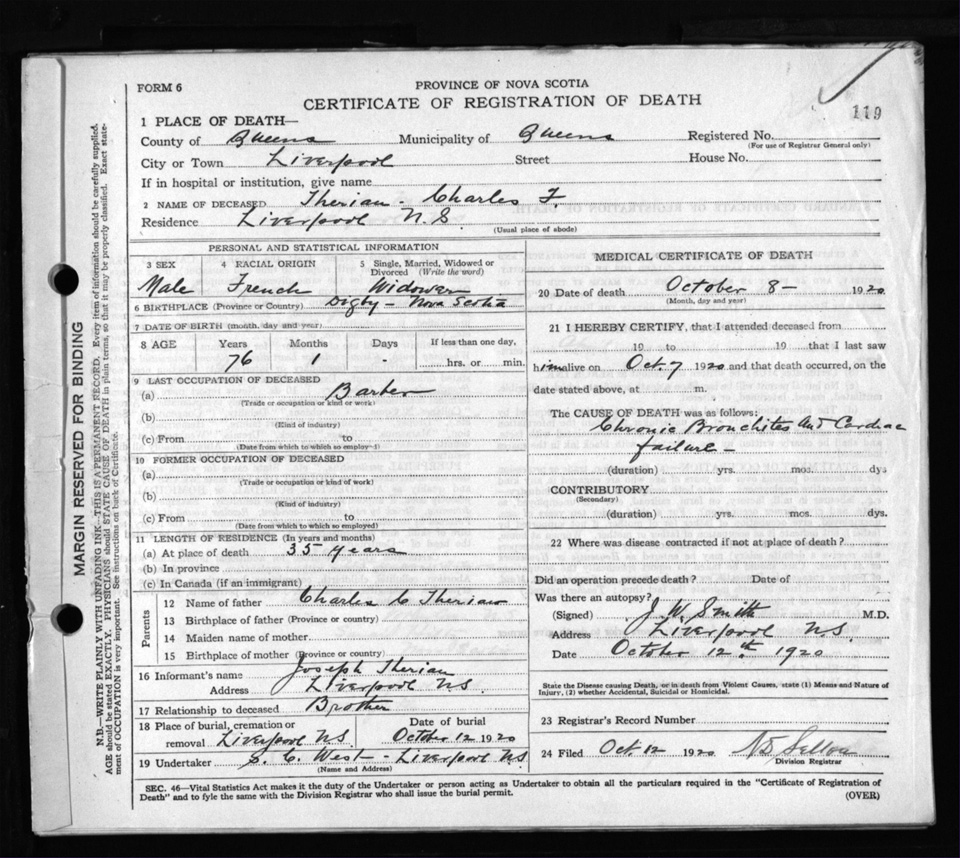 FORM 6
PROVINCE OF NOVA SCOTIA
CERTIFICATE OF REGISTRATION OF DEATH
119
1 PLACE OF DEATH—
County of Queens Municipality of Queens Registered No.
(For use of Registrar General only)
City or Town Liverpool Street House No.
If in hospital or institution, give name
2 NAME OF DECEASED Therian - Charles F
Residence Liverpool N.S.
(Usual place of abode)
PERSONAL AND STATISTICAL INFORMATION
3 SEX 4 RACIAL ORIGIN 5 Single, Married, Widowed or Divorced (Write the word)
Male French Widower
6 BIRTHPLACE (Province or Country) Digby - Nova Scotia
7 DATE OF BIRTH (month, day and year)
8 AGE Years Months Days If less than one day,
76 1 - hrs. or min.
9 LAST OCCUPATION OF DECEASED
(a) Barber
(Trade or occupation or kind or work)
(b)
(Kind of industry)
(c) From to
(Date from which to which so employed)
10 FORMER OCCUPATION OF DECEASED
(a)
(Trade or occupation or kind of work)
(b)
(Kind of industry)
(c) From to
(Date from which to which so employed)
11 LENGTH OF RESIDENCE (In years and months)
(a) At place of death 35 years
(b) In province
(c) In Canada (if an immigrant)
Parents
12 Name of father Charles C Therian
13 Birthplace of father (Province or country)
14 Maiden name of mother
15 Birthplace of mother (Province or country)
16 Informant's name Joseph Therian
Address Liverpool N.S.
17 Relationship to deceased Brother
18 Place of burial, cremation or Date of burial
removal Liverpool N.S October 12 1920
19 Undertaker S. C. West - Liverpool N.S
(Name and Address)
MEDICAL CERTIFICATE OF DEATH
20 Date of death October 8 - 1920
(Month, day and year)
21 I HEREBY CERTIFY, that I attended deceased from
19 to 19 that I last saw
him alive on Oct. 7 1920 and that death occurred, on the
date stated above, at m.
The CAUSE OF DEATH was as follows:
Chronic Bronchites And Cardiac
failure -
(duration) yrs. mos. dys
CONTRIBUTORY
(Secondary)
(duration) yrs. mos. dys.
22 Where was disease contracted if not at place of death?
Did an operation precede death? Date of
Was there an autopsy?
(Signed) J. W. Smith M.D.
Address Liverpool N.S.
Date October 12th 1920
State the Disease causing Death, or in death from Violent Causes, state (1) Means and Nature of
Injury, (2) whether Accidental, Suicidal or Homicidal.
23 Registrar's Record Number
24 Filed Oct. 12 1920
Division Registrar
SEC. 46—Vital Statistics Act makes it the duty of the Undertaker or person acting as Undertaker to obtain all the particulars required in the "Certificate of Registration of
Death" and to fyle the same with the Division Registrar who shall issue the burial permit. (OVER)
MARGIN RESERVED FOR BINDING
N.B.—WRITE PLAINLY WITH UNFADING INK—THIS IS A PERMANENT RECORD. Every item of information should be carefully supplied.
AGE should be stated EXACTLY. PHYSICIANS should STATE CAUSE OF DEATH in plain terms, so that it may be properly classified. Exact state-
ment of OCCUPATION is very important. See instructions on back of Certificate.